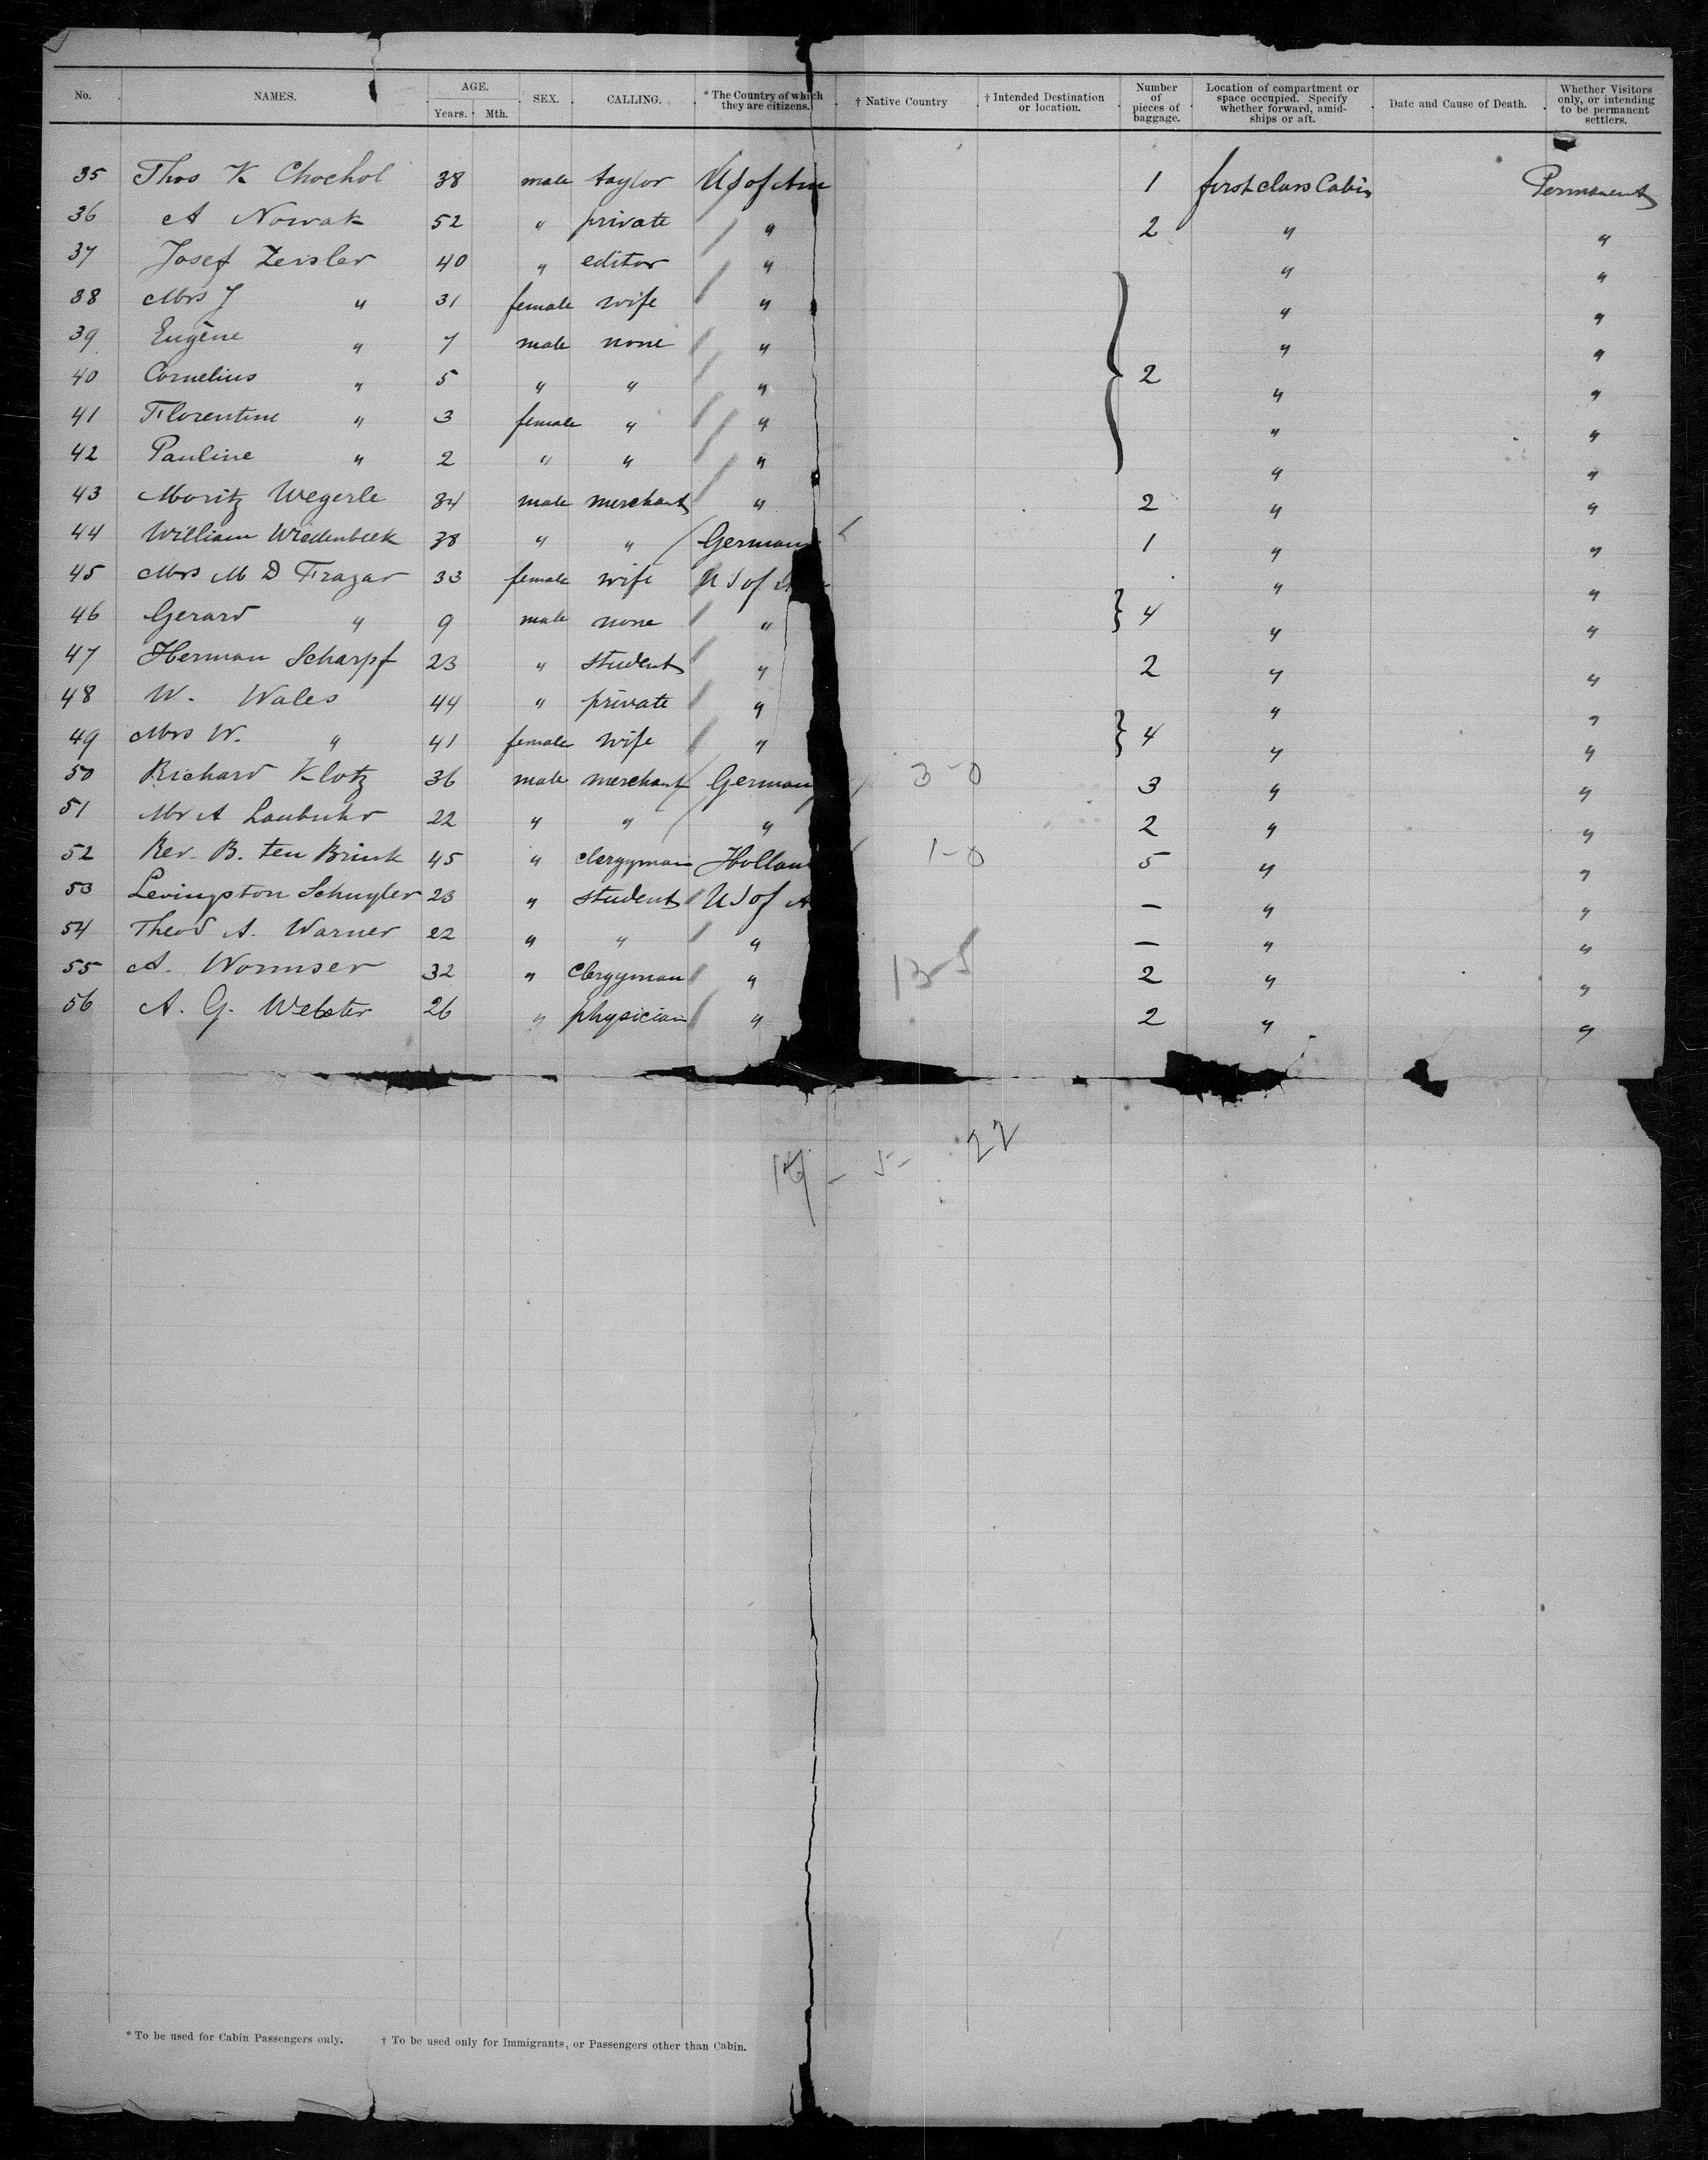 No. NAMES. AGE. Years. Mth. SEX. CALLING. * The Country of which they are citizens. † Native Country † Intended Destination or location. Number of pieces of baggage. Location of compartment or space occupied. Specify whether forward, amidships or aft. Date and Cause of Death. Whether Visitors only, or intending to be permanent settlers.
35 Thos K Chochol 38 male taylor US of Am 1 first class Cabin Permanent
36 A Nowak 52 " private " 2 " "
37 Josef Zeisler 40 " editor " " "
38 Mrs J " 31 female wife " " "
39 Eugène " 7 male none " " "
40 Cornelius " 5 " " " 2 " "
41 Florentine " 3 female " " " "
42 Pauline " 2 " " " " "
43 Moritz Wegerle 34 male merchant " 2 " "
44 William Wiedenbeek 38 " " German 1 " "
45 Mrs M D Frazar 33 female wife US of " "
46 Gerard " 9 male none " 4 " "
47 Herman Scharpf 23 " student " 2 " "
48 W. Wales 44 " private " " "
49 Mrs W. " 41 female wife " 4 " "
50 Richard Klotz 36 male merchant German 3-0 3 " "
51 Mr A Laubuhr 22 " " " 2 " "
52 Rev. B. ten Brink 45 " clergyman Hollan 1-0 5 " "
53 Levingston Schuyler 23 " student US of A — " "
54 Theod A. Warner 22 " " " — " "
55 A. Wormser 32 " clergyman " 13-5 2 " "
56 A. G. Webster 26 " physician " 2 " "
- 5- 22
* To be used for Cabin Passengers only. † To be used only for Immigrants, or Passengers other than Cabin.